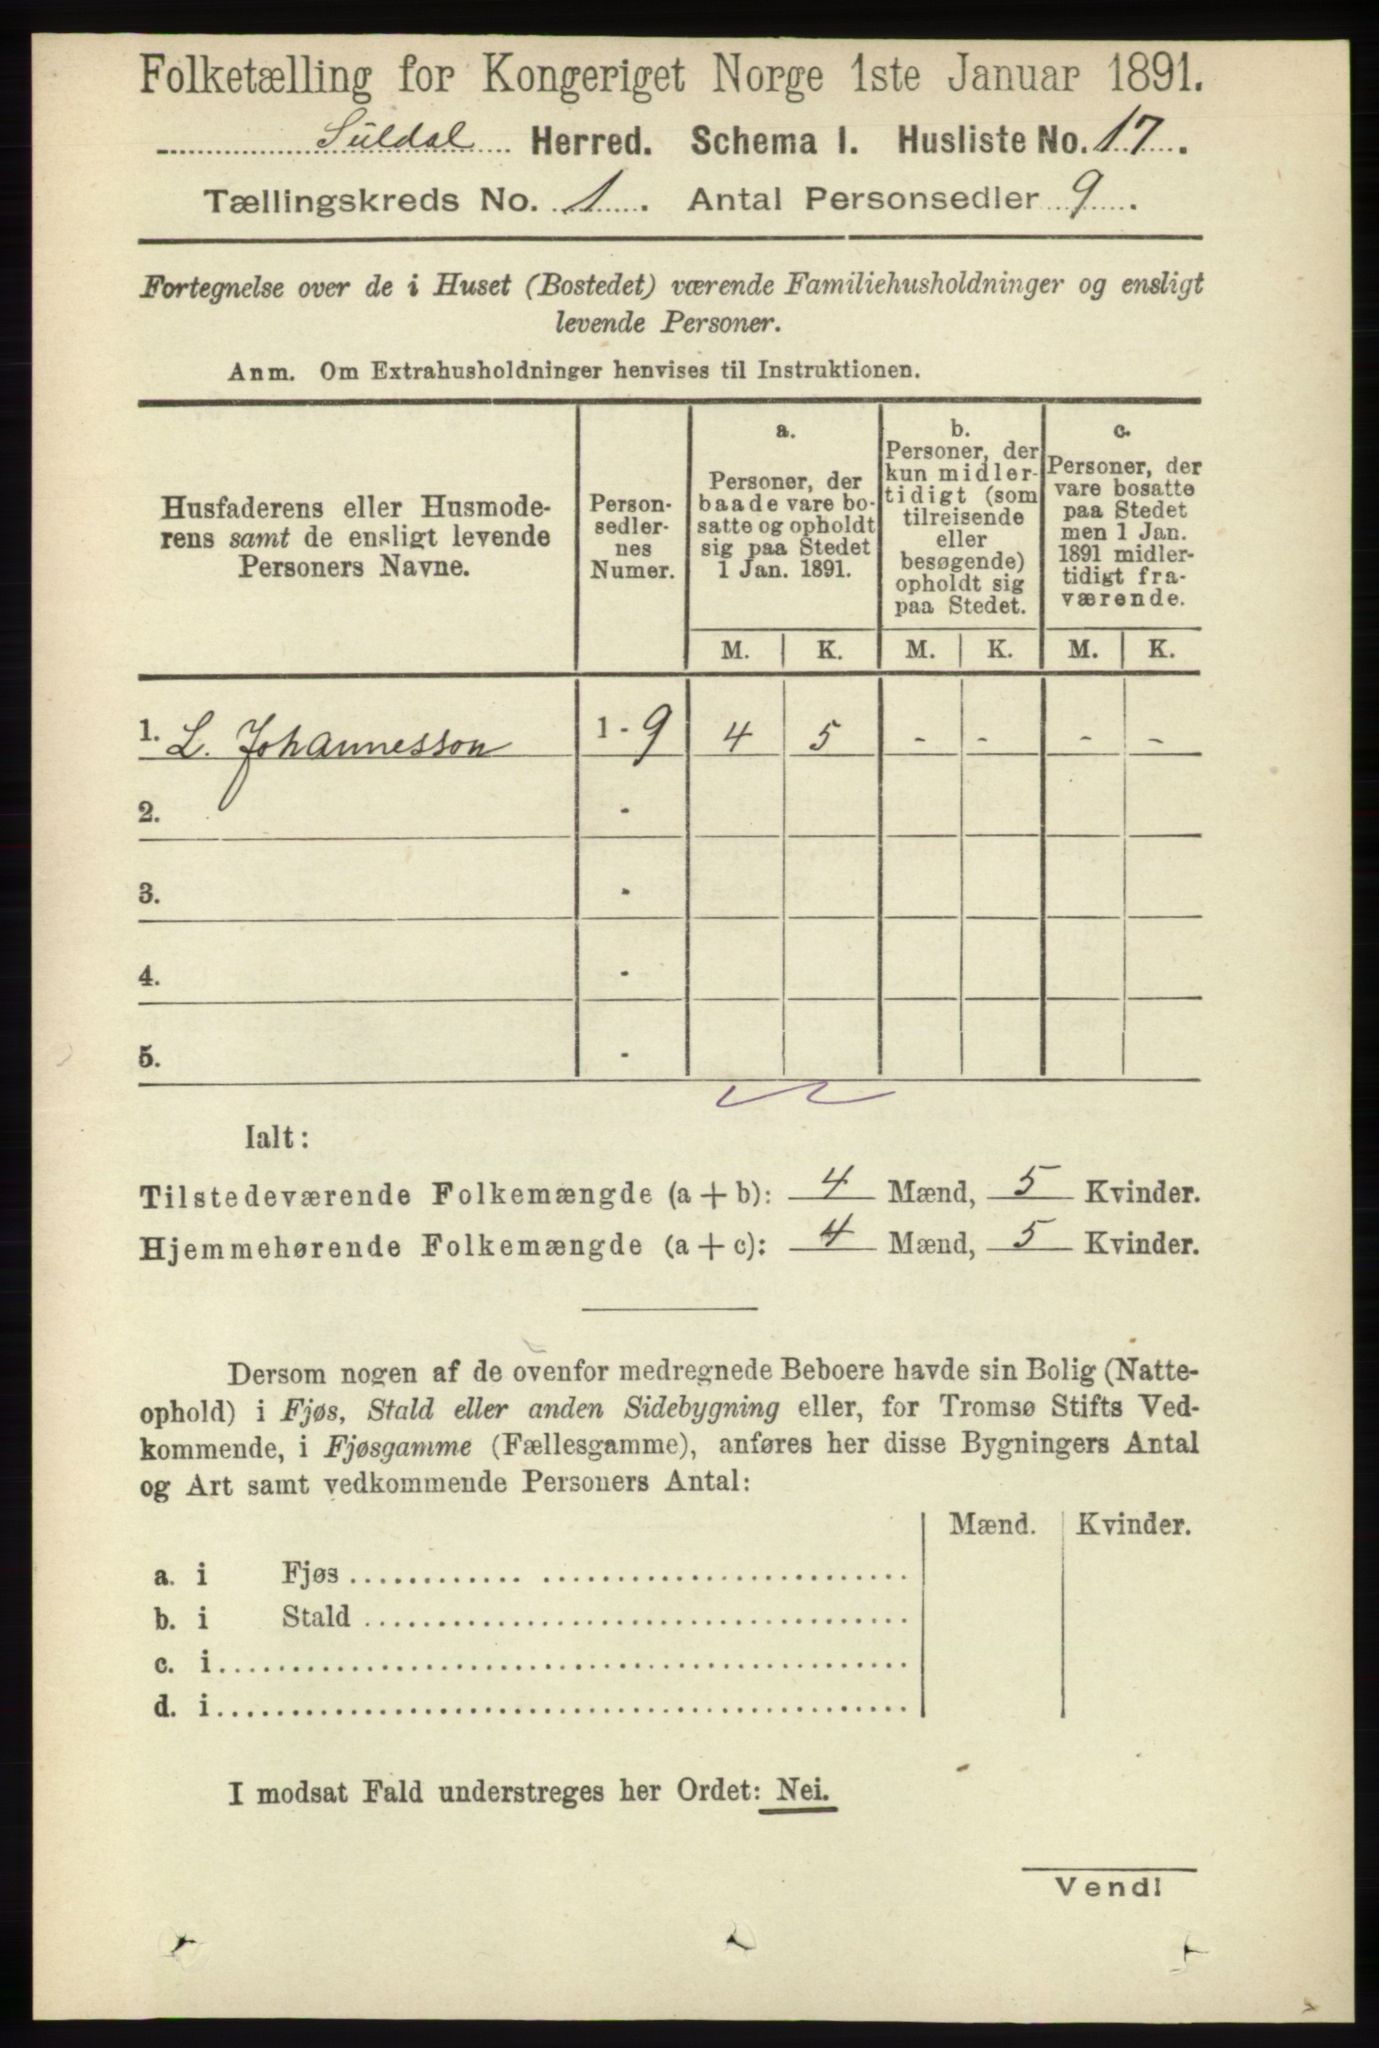 Folketælling for Kongeriget Norge 1ste Januar 1891.
Suldal Herred. Schema I. Husliste No. 17.
Tællingskreds No. 1. Antal Personsedler 9.
Fortegnelse over de i Huset (Bostedet) værende Familiehusholdninger og ensligt
levende Personer.
Anm. Om Extrahusholdninger henvises til Instruktionen.
Husfaderens eller Husmode-
rens samt de ensligt levende
Personers Navne.
Person-
sedler-
nes
Numer.
a.
Personer, der
baade vare bo-
satte og opholdt
sig paa Stedet
1 Jan. 1891.
b.
Personer, der
kun midler-
tidigt (som
tilreisende
eller
besøgende)
opholdt sig
paa Stedet.
c.
Personer, der
vare bosatte
paa Stedet
men 1 Jan.
1891 midler-
tidigt fra-
værende.
M. K. M. K. M. K.
1. L. Johannesson 1 - 9 4 5 - - - -
2. -
3. -
4. -
5. -
Ialt:
Tilstedeværende Folkemængde (a + b): 4 Mænd, 5 Kvinder.
Hjemmehørende Folkemængde (a + c): 4 Mænd, 5 Kvinder.
Dersom nogen af de ovenfor medregnede Beboere havde sin Bolig (Natte-
ophold) i Fjøs, Stald eller anden Sidebygning eller, for Tromsø Stifts Ved-
kommende, i Fjøsgamme (Fællesgamme), anføres her disse Bygningers Antal
og Art samt vedkommende Personers Antal:
Mænd. Kvinder.
a. i Fjøs
b. i Stald
c. i
d. i
I modsat Fald understreges her Ordet: Nei.
Vend!